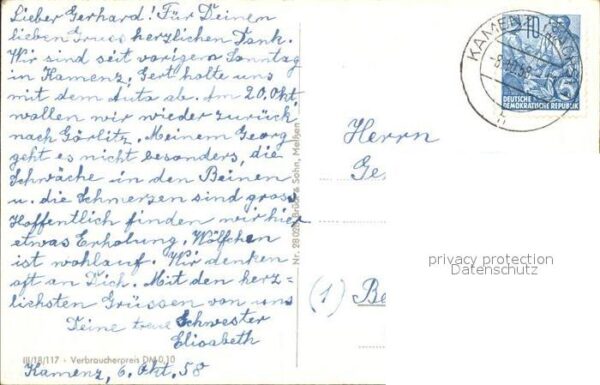 Lieber Gerhard! Für Deinen
lieben Gruss herzlichen Dank.
Wir sind seit vorigem Sonntag
in Kamenz, Gert holte uns
mit dem Auto ab. Am 20. Okt.
wollen wir wieder zurück
nach Görlitz. Meinem Georg
geht es nicht besonders, die
Schwäche in den Beinen
u. die Schmerzen sind gross.
Hoffentlich finden wir hier
etwas Erholung. Wölfchen
ist wohlauf. Wir denken
oft an Dich. Mit den herz=
lichsten Grüssen von uns
Deine treue Schwester
Elisabeth
III/18/117 · Verbraucherpreis DM 0,10
Kamenz, 6. Okt. 58
Brück & Sohn, Meißen
KAMENZ
10
DEUTSCHE
DEMOKRATISCHE REPUBLIK
h
Herrn
Ge
(1) Be
privacy protection
Datenschutz